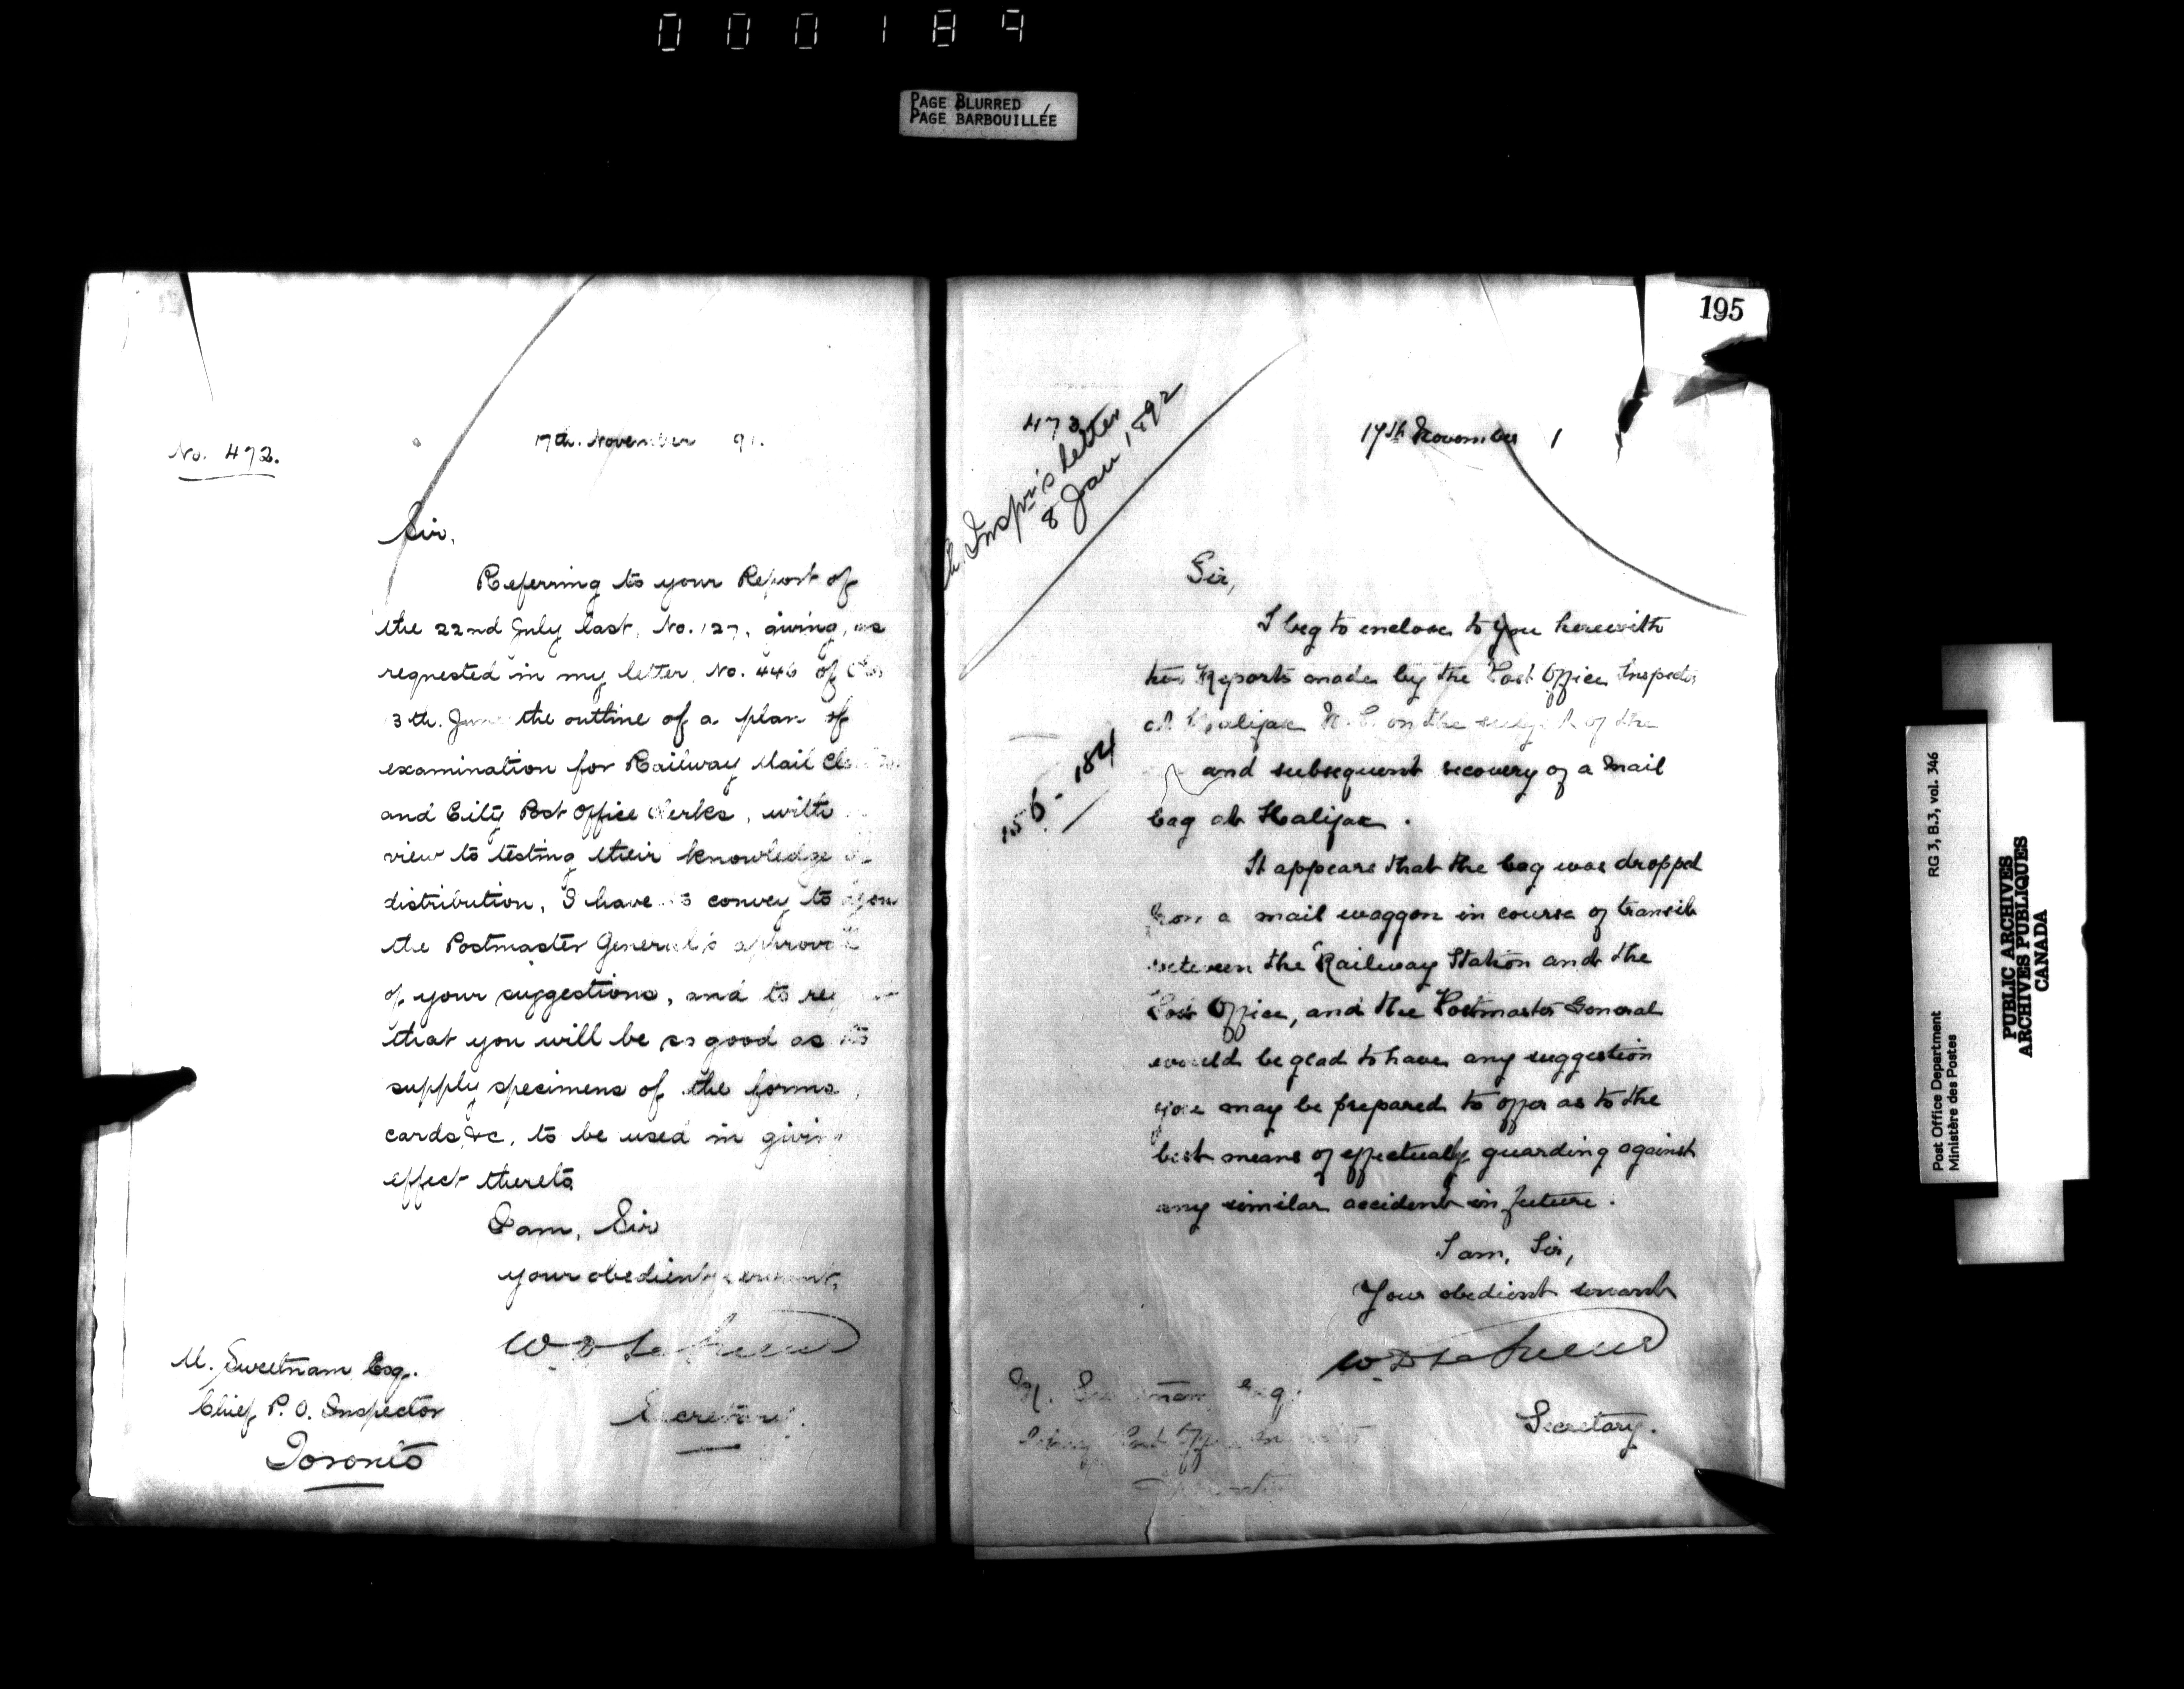 000189
PAGE BLURRED
PAGE BARBOUILLÉE
No. 472.
17th. November 91.
Sir,
Referring to your Report of
the 22nd July last, No. 127, giving, as
requested in my letter, No. 446 of
3th. June the outline of a plan of
examination for Railway Mail
and City Post Office Clerks, with
view to testing their knowledge of
distribution, I have to convey to you
the Postmaster General's approval
of your suggestions, and to
that you will be so good as to
supply specimens of the forms,
cards, &c, to be used in giving
effect thereto
I am, Sir
your obedient servant,
Secretary.
M. Sweetnam Esq.
Chief P. O. Inspector
Toronto
195
473
Ch. Inspr's letter
8 Jan 1892
17th November 1
Sir,
I beg to enclose to you herewith
two Reports made by the Post Office Inspector
at Halifax N.S. on the subject of the
and subsequent recovery of a Mail
bag at Halifax.
156-184
It appears that the bag was dropped
from a mail waggon in course of transit
between the Railway Station and the
Post Office, and the Postmaster General
would be glad to have any suggestion
you may be prepared to offer as to the
best means of effectually guarding against
any similar accident in future.
I am, Sir,
Your obedient servant
Secretary.
M. Sweetnam Esq.
Chief Post Office Inspector
Toronto
Post Office Department RG 3, B.3, vol. 346
Ministère des Postes
PUBLIC ARCHIVES
ARCHIVES PUBLIQUES
CANADA